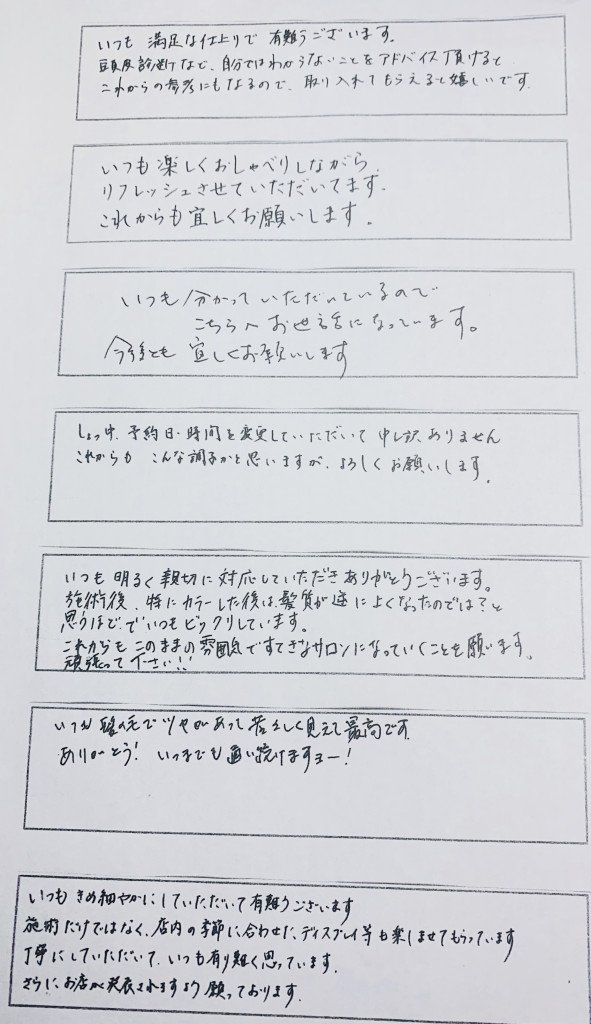 いつも 満足な仕上りで 有難うございます.
頭皮診断など、自分ではわからないことをアドバイス頂けると
これからの参考にもなるので、取り入れてもらえると嬉しいです.
いつも楽しくおしゃべりしながら、
リフレッシュさせていただいてます.
これからも宜しくお願いします.
いつも分かっていただいているので
こちらへお世話になっています。
今後とも 宜しくお願いします
しょっ中、予約日・時間を変更していただいて 申し訳ありません
これからも こんな調子かと思いますが、よろしくお願いします.
いつも明るく親切に対応していただきありがとうございます。
施術後、特にカラーした後は、髪質が逆によくなったのでは?と
思うほどで、いつもビックリしています。
これからもこのままの雰囲気ですてきなサロンになっていくことを願います.
頑張って下さい!!
いつも髪の毛でツヤがあって若々しく見えて最高です.
ありがとう! いつまでも通い続けますヨー!
いつもきめ細やかにしていただいて有難うございます
施術だけではなく、店内の季節に合わせた、ディスプレイ等も楽しませてもらっています
丁寧にしていただいて、いつも有り難く思っています.
さらに、お店が発展されますよう願っております.